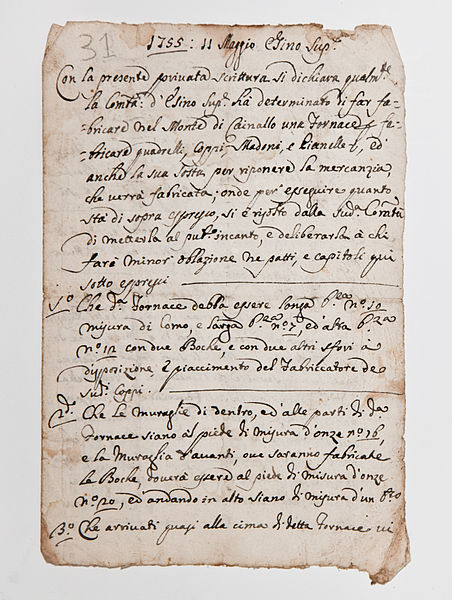 31
1755: 11 Maggio Esino Sup.re
Con la presente privata scrittura si dichiara qualm.te
la Comtà: d'Esino Sup.e hà determinato di far fa-
-bricare nel Monte di Cainallo una Fornace p fa-
-bricare quadrelli, Coppi, Madoni, e Pianelle, ed
anche la sua Sosta per riponere la mercanzia,
che verrà fabricata; onde per eseguire quanto
stà di sopra espresso, si è risolto dalla Sud.a Comtà
di metterla al pub.co incanto, e deliberarla à chi
farà minor oblazione ne patti, e capitoli qui
sotto espressi
1.o Che d.a Fornace debba essere longa b.za n.o 10
misura di Como, e larga b.za n.o 7, ed alta b.za
n.o 12 con due Boche, e con due altri sfori à
disposizione, e piaccimento del Fabriccatore de
Sud.i Coppi.
2.do Che le Muraglie di dentro, ed' alle parti di d.a
Fornace siano al piede di misura d'onze n.o 16,
e la Muraglia d'avanti, ove saranno fabricate
le Boche, doverà essere al piede di misura d'onze
n.o 20, ed andando in alto siano di misura d'un b.zo
3.o Che arrivati quasi alla cima di detta Fornace vi